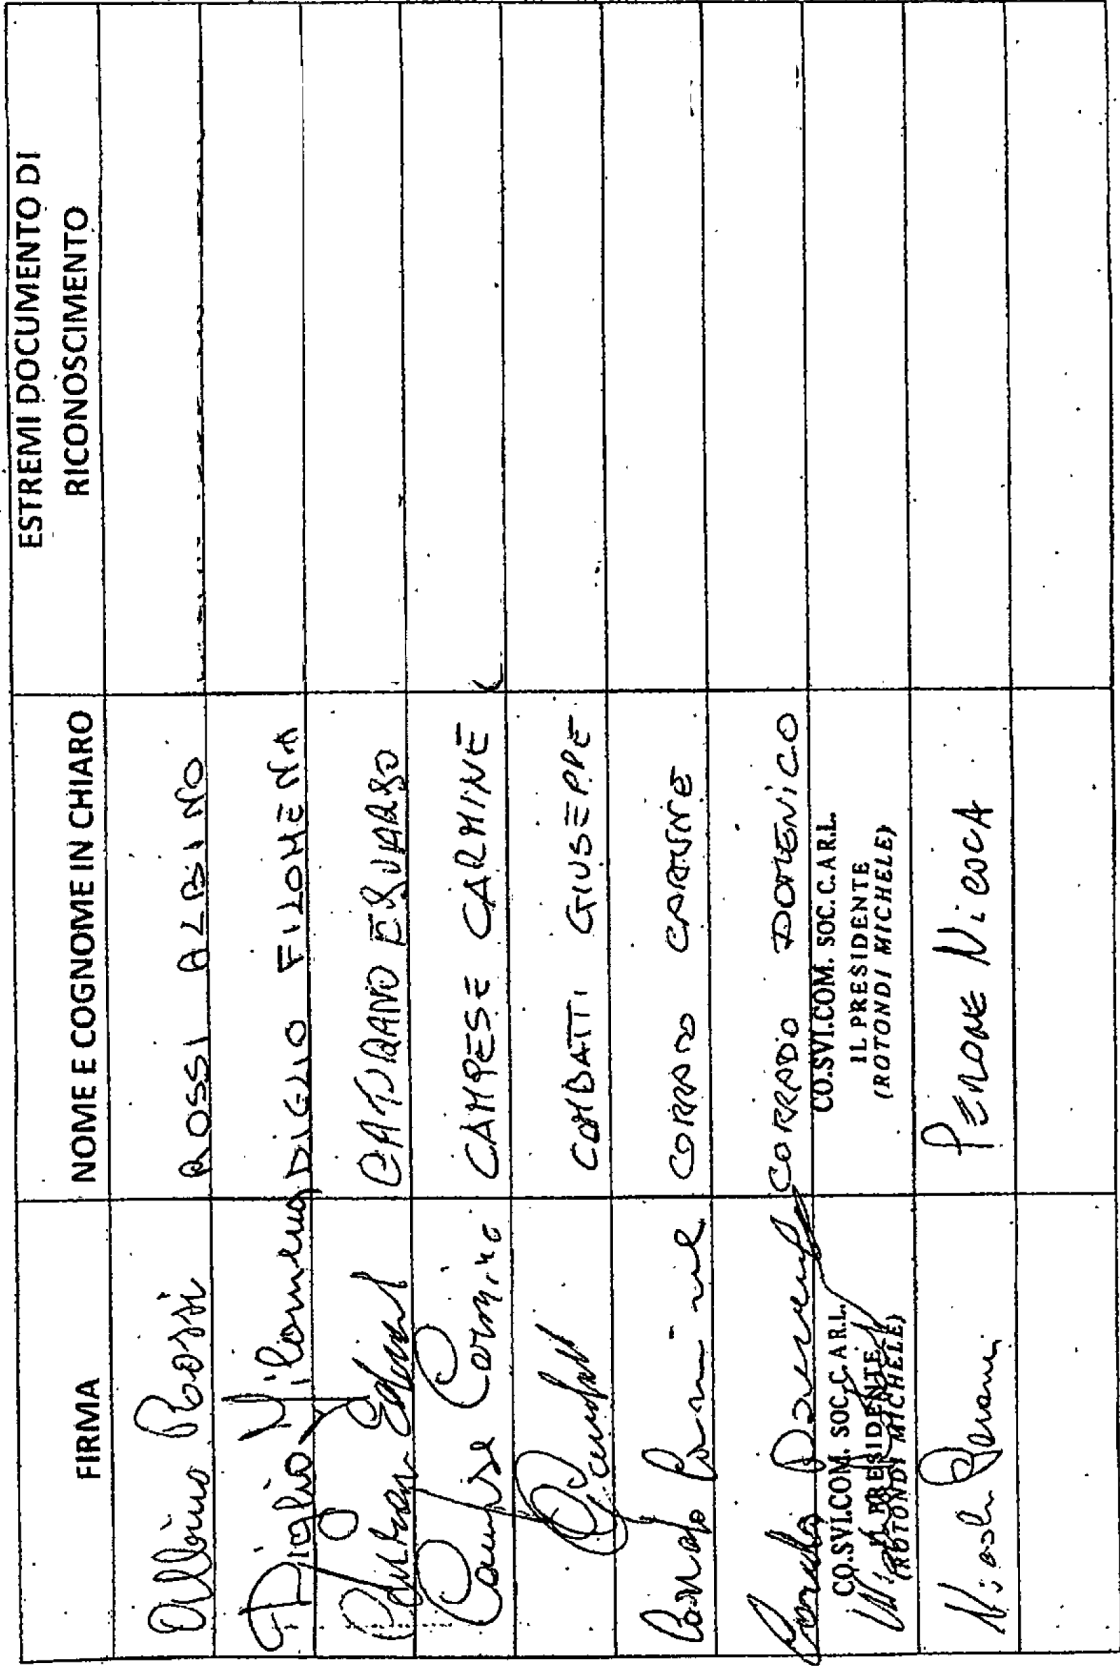 FIRMA NOME E COGNOME IN CHIARO ESTREMI DOCUMENTO DI
RICONOSCIMENTO
Albino Rossi ROSSI ALBINO
Diglio Filomena DIGLIO FILOMENA
CATURANO EDUARDO
Campese Carmine CAMPESE CARMINE
COMBATTI GIUSEPPE
Corrado Carmine CORRADO CARMINE
Corrado CORRADO DOMENICO
CO.SVI.COM. SOC. C. A R.L. CO.SVI.COM. SOC. C. A R.L.
IL PRESIDENTE IL PRESIDENTE
(ROTONDI MICHELE) (ROTONDI MICHELE)
Nicola Perone PERONE NicoLA